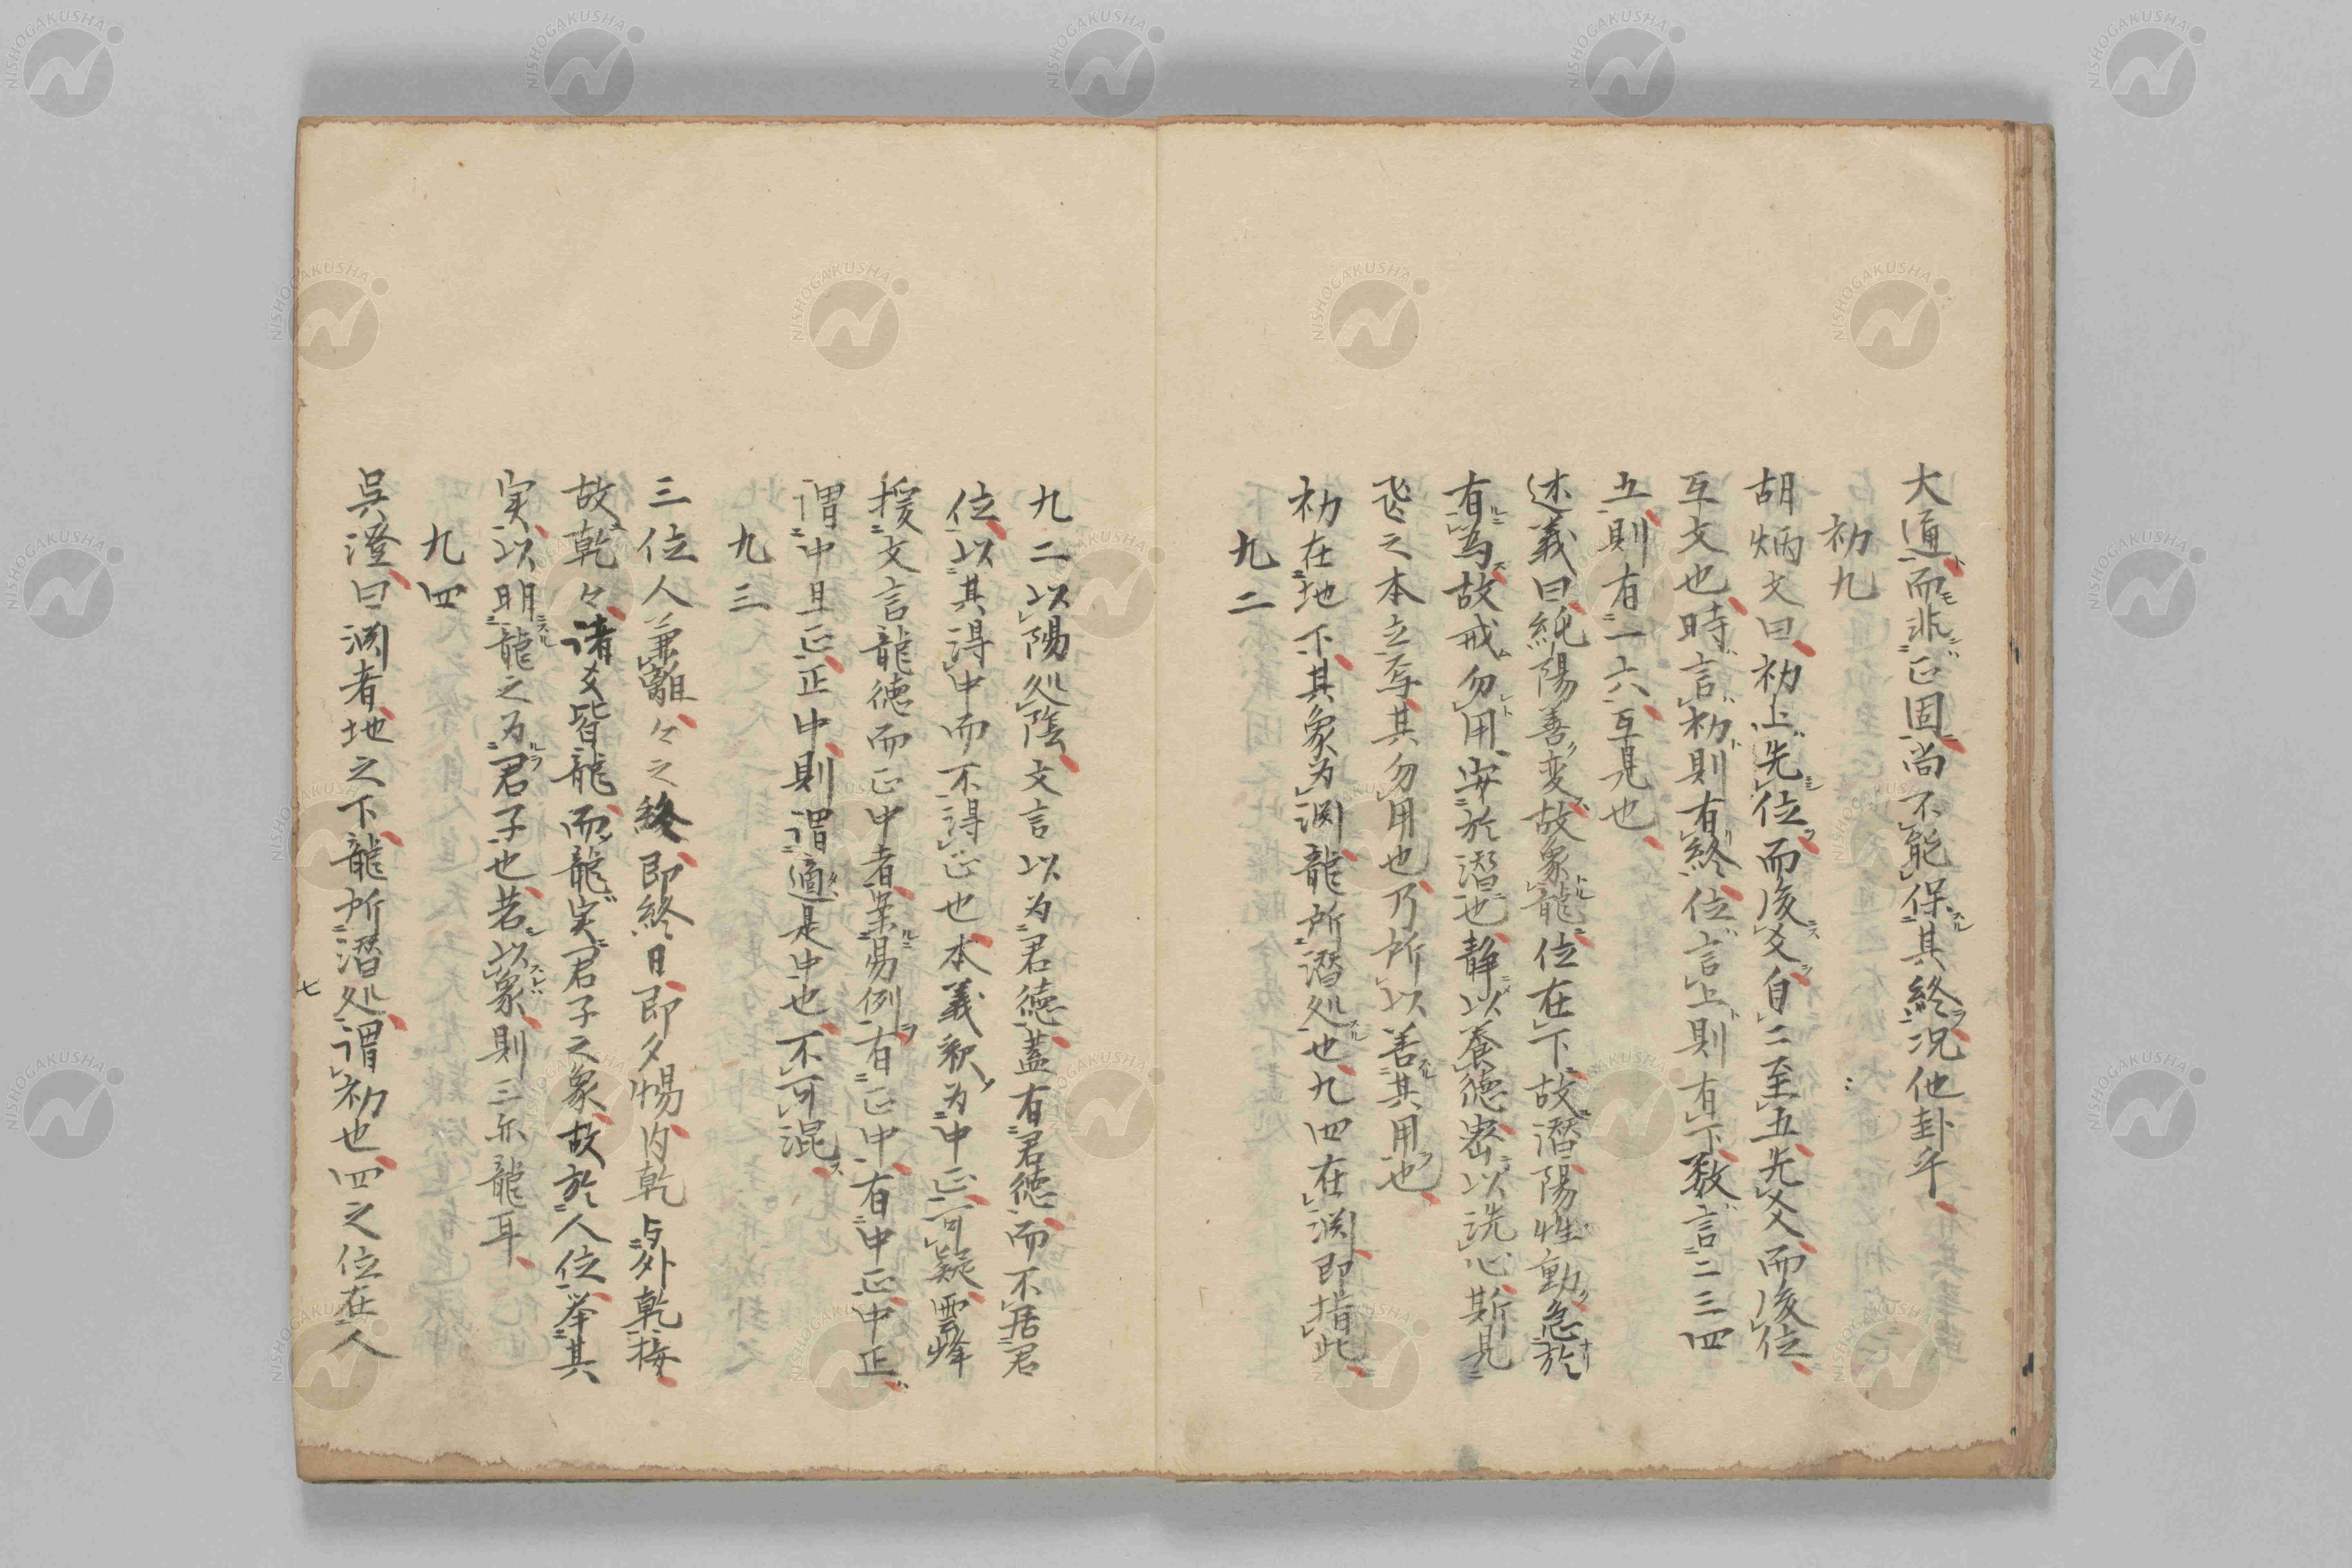 大通而非正固尚不能保其終况他卦乎
初九
胡炳文曰初上先位而後爻自二至五先爻而後位
互文也時言初則有終位言上則有下数言二三四
五則有一六互見也
述義曰純陽善変故象龍位在下故潜陽性動急於
有為故戒勿用安於潜也静以養徳密以洗心斯見
飛之本立焉其勿用也乃所以善其用也
初在地下其象为渊龍所潜処也九四在渊即指此
九二
九二以陽処陰文言以为君徳蓋有君徳而不居君
位以其得中而不得正也本義釈为中正可疑雲峰
援文言龍徳而正中者業易例有正中有中正中正
謂中且正正中則謂適是中也不可混
九三
三位人兼離々之終即終日即夕惕内乾与外乾接
故乾々諸爻皆龍而龍実君子之象故於人位挙其
実以明龍之为君子也若以象則三亦龍耳
九四
呉澄曰渊者地之下龍所潜処謂初也四之位在人
七
NISHOGAKUSHA